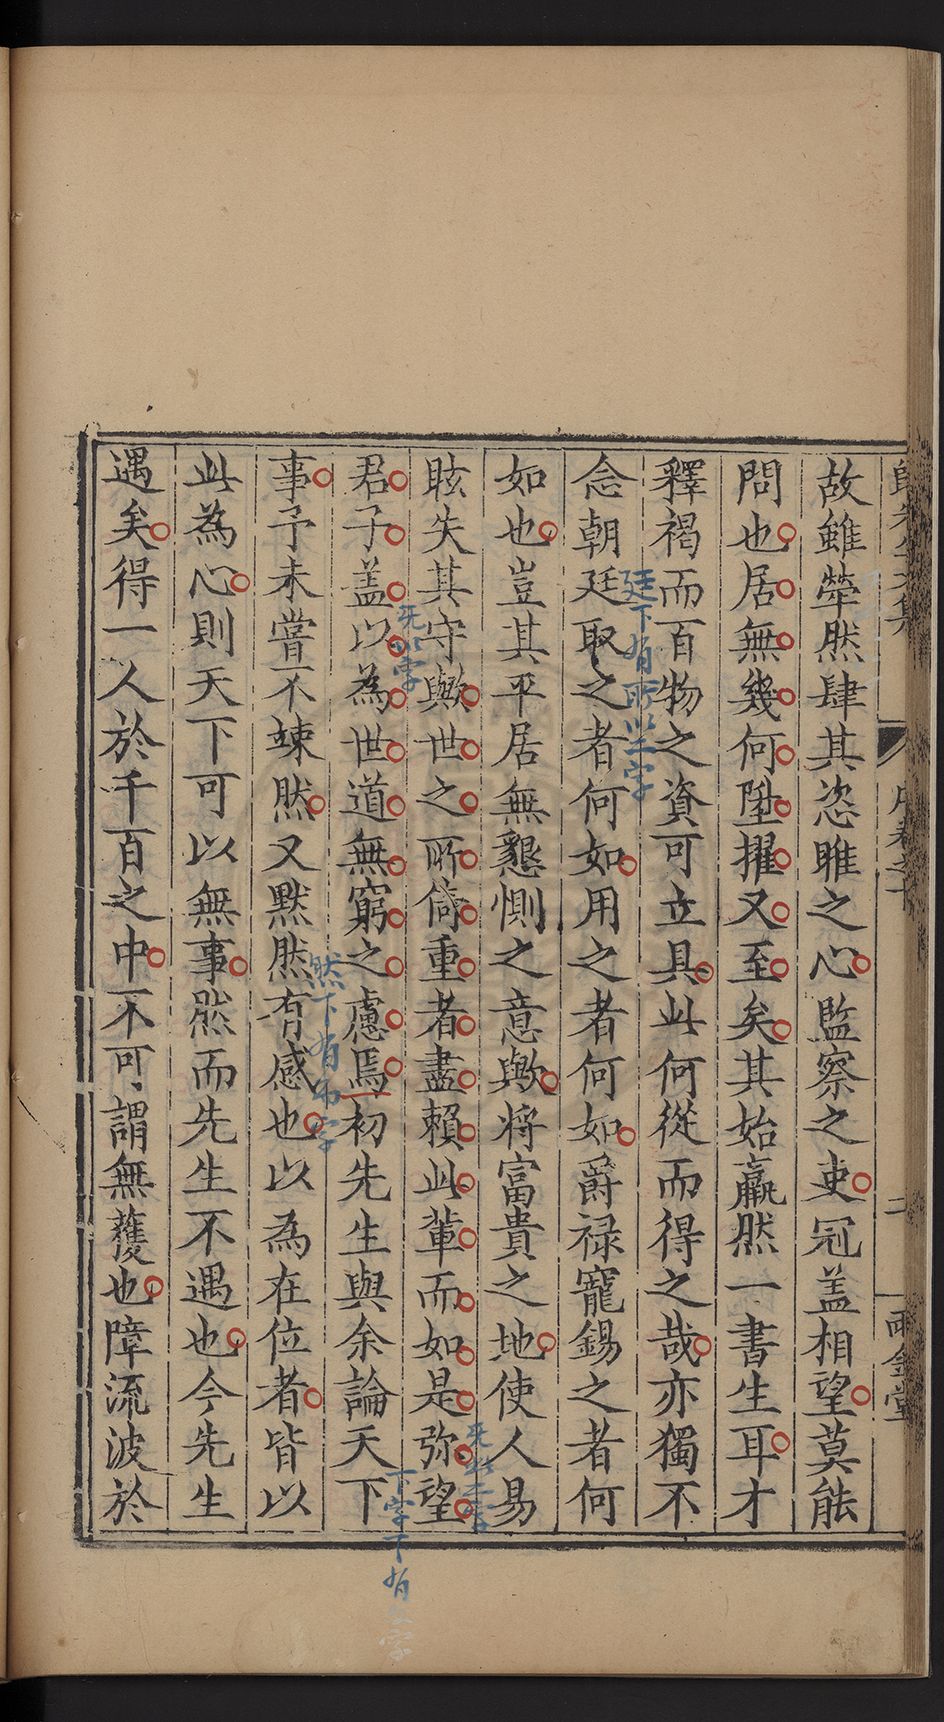 故雖犖然肆其恣睢之心監察之吏冠盖相望莫能
問也居無幾何陞擢又至矣其始羸然一書生耳才
釋褐而百物之資可立具此何從而得之哉亦獨不
廷下有所以二字
念朝廷取之者何如用之者何如爵禄寵錫之者何
如也豈其平居無懇惻之意歟將富貴之地使人易
眩失其守歟世之所倚重者盡賴此輩而如是弥望
君子盖以為世道無窮之慮焉初先生與余論天下
下字下有
事予未嘗不竦然又默然有感也以為在位者皆以
此為心則天下可以無事然而先生不遇也今先生
遇矣得一人於千百之中不可謂無蒦也障流波於